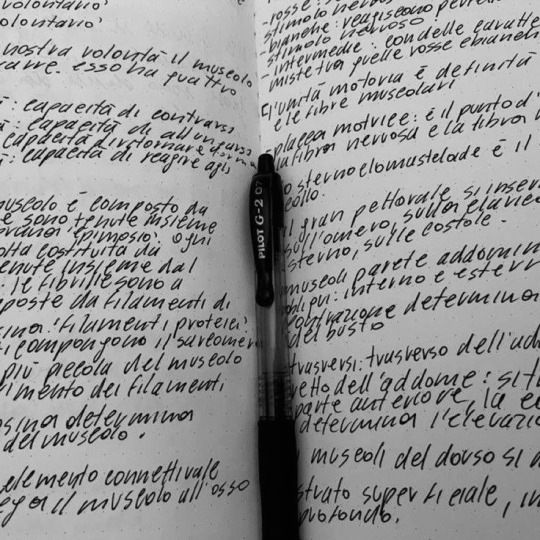 volontario
volontario
nostra volontà il muscolo
esso ha quattro
: capacità di contrarsi
: capacità di allungarsi
capacità di ritornare
: capacità di reagire agli
muscolo è composto da
e sono tenute insieme
epimosio. ogni
costituita da
tenute insieme dal
. le fibrille sono a
poste da filamenti di
sina. filamenti proteici
compongono il sarcomero
più piccola del muscolo
rimento dei filamenti
osina determina
del muscolo.
elemento connettivale
lega il muscolo all'osso
PILOT G-2 07
- rosse:
stimolo nervoso
- bianche: reagiscono
stimolo nervoso
- intermedie: con delle
miste tra quelle rosse e bianche
l'unità motoria è definita
e le fibre muscolari
placca motrice: è il punto d'
la fibra nervosa e la fibra
lo sternocleidomastoideo è il
collo.
il gran pettorale si inser
sull'omero, sulla clavic
sterno, sulle costole.
muscoli parete addomin
obliqui: interno e estern
contrazione determina
del busto
trasversi: trasverso dell'ad
retto dell'addome: si t
parte anteriore, la
determina l'elevazio
i muscoli del dorso si
strato superficiale, in
profondo.